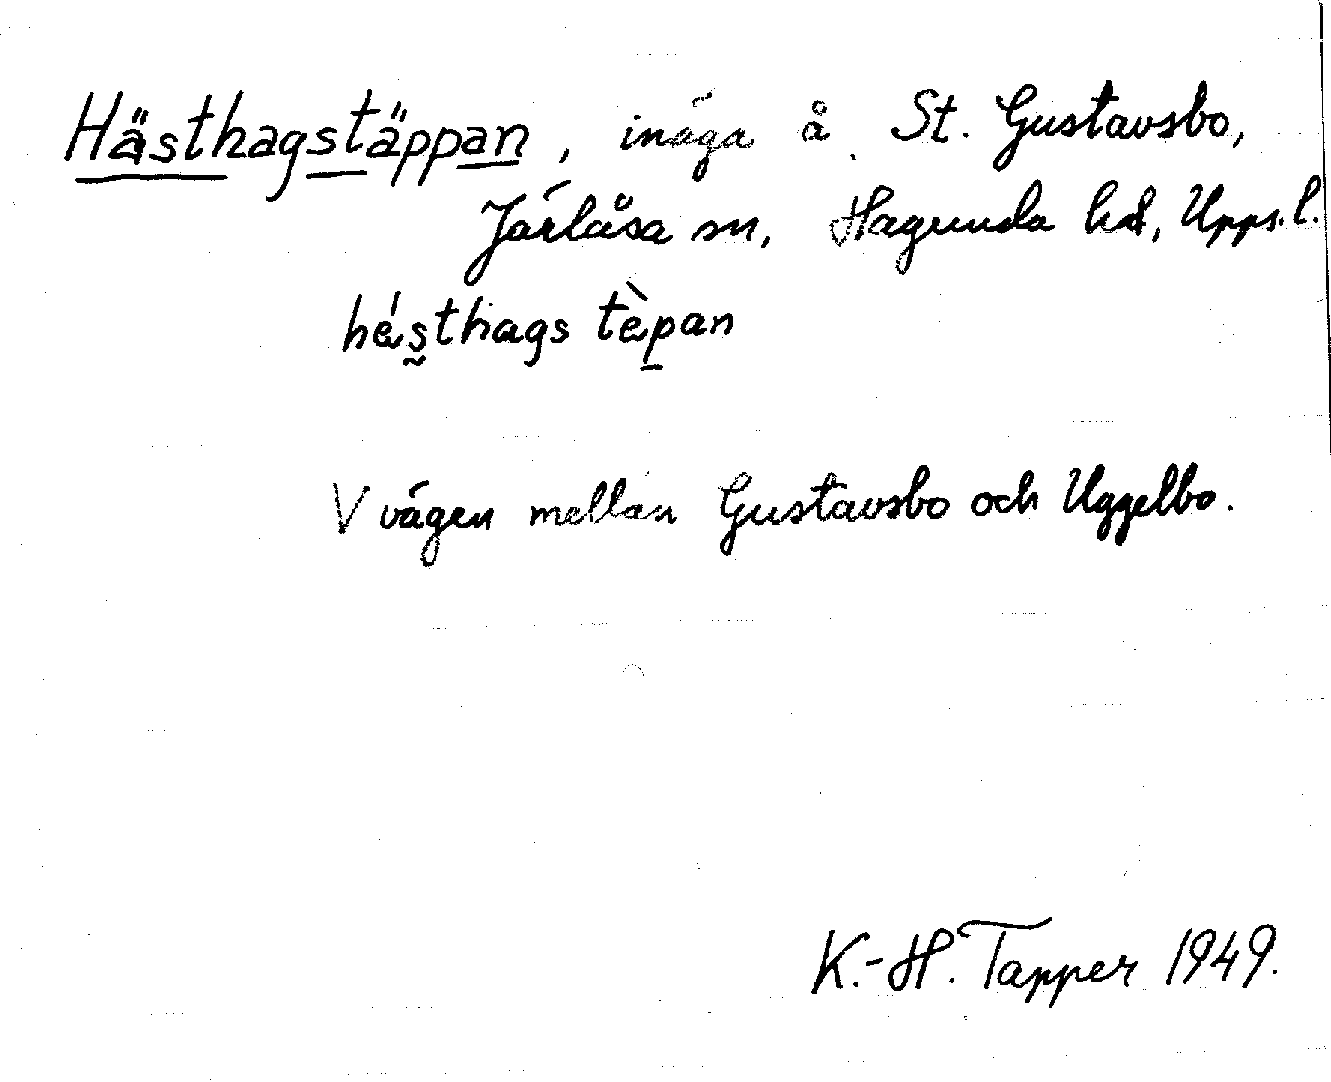 Hästhagstäppan, inäga å St. Gustavsbo,
Järlåsa sn, Hagunda hd, Upps. l.
hésthags tèpan
V vägen mellan Gustavsbo och Uggelbo.
K.-H. Tapper 1949.